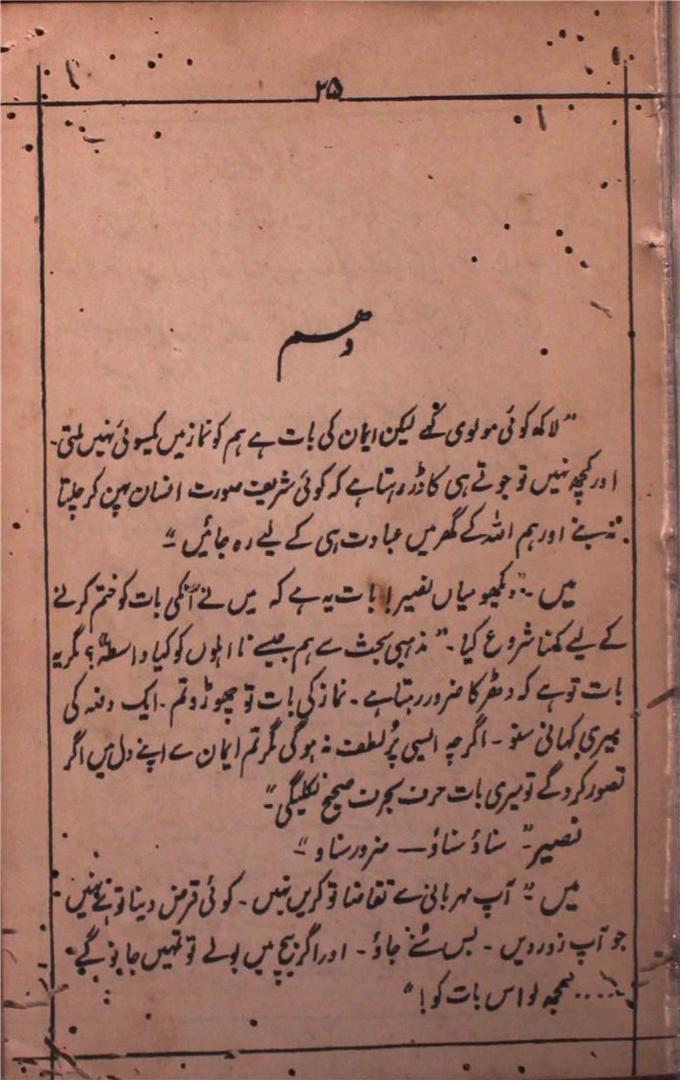 ۲۵
وہم
"لاکھ کوئی مولوی کہے لیکن ایمان کی بات ہے ہم کو نماز میں یکسوئی نہیں ملتی۔
اور کچھ نہیں تو جوتے ہی کا ڈر رہتا ہے کہ کوئی شریف صورت انسان پہن کر چلتا
نہ بنے اور ہم اللہ کے گھر میں عبادت ہی کے لیے رہ جائیں"۔
میں۔ "دیکھو میاں نصیر! بات یہ ہے کہ میں نے انکی بات کو ختم کرنے
کے لیے کہنا شروع کیا۔ "مذہبی بحث سے ہم جیسے نااہلوں کو کیا واسطہ؟ مگر یہ
بات تو ہے کہ دھڑکا ضرور رہتا ہے۔ نماز کی بات تو چھوڑو تم۔ ایک دفعہ کی
میری کہانی سنو۔ اگرچہ ایسی پُر لطف نہ ہوگی مگر تم ایمان سے اپنے دل میں اگر
تصور کرو گے تو میری بات حرف بحرف صحیح نکلیگی"۔
نصیر۔ "سناؤ سناؤ — ضرور سناؤ"۔
میں۔ "آپ مہربانی سے تقاضا تو کریں نہیں۔ کوئی قرض دینا تو ہے نہیں
جو آپ زور دیں۔ بس سنے جاؤ۔ اور اگر بیچ میں بولے تو تمہیں جانو گے۔
..... سمجھ لو اس بات کو!"